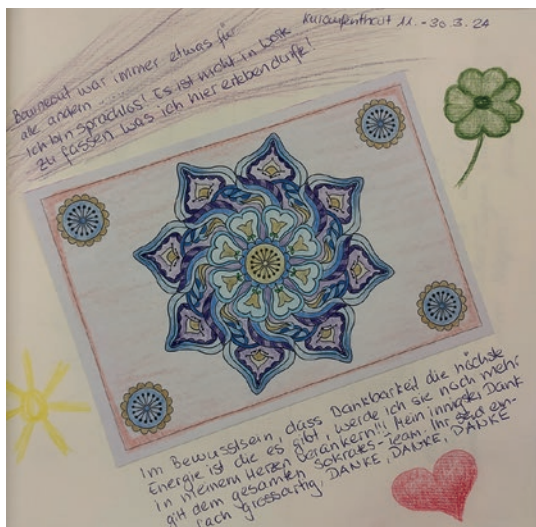 Kuraufenthalt 11. - 30.3.24
Bournout war immer etwas für
alle andern
Ich bin sprachlos! Es ist nicht in Worte
zu fassen was ich hier erleben durfte!
Im Bewusstsein, dass Dankbarkeit die höchste
Energie ist die es gibt, werde ich sie noch mehr
in meinem Herzen verankern!!! Mein innigster Dank
gilt dem gesamten Sokrates-Team. Ihr seid ein-
fach grossartig, DANKE, DANKE, DANKE